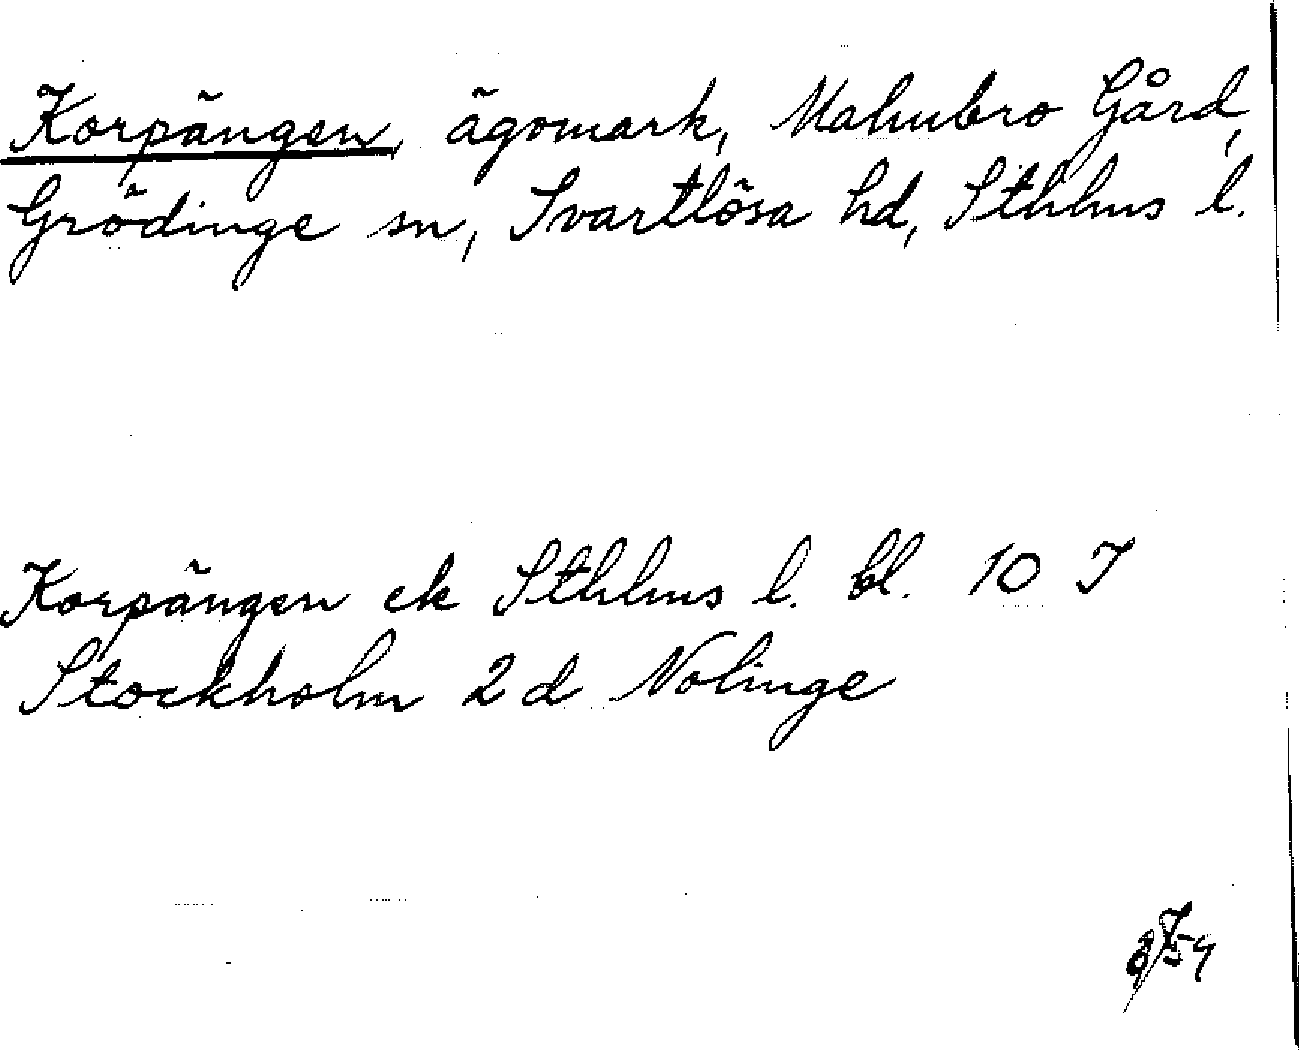 Korpängen, ägomark, Malmbro Gård,
Grödinge sn, Svartlösa hd, Sthlms l.
Korpängen ek Sthlms l. bl. 10 I
Stockholm 2d Nolinge